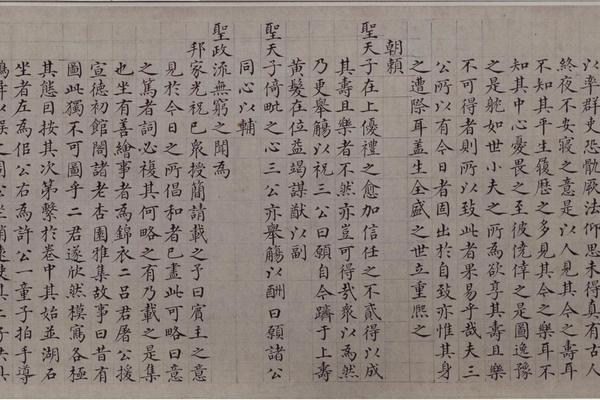 以率群吏恐骩厥法仰思未得真有古人
終夜不安寢之意是以人見其今之壽耳
不知其平生履歷之多見其今之樂耳不
知其中心憂畏之至彼僥倖之是圖逸豫
之是躭如世小夫之所為欲享其壽且樂
不可得者則所以致此者果易乎哉夫三
公所以有今日者固出於自致亦惟其身
之遭際耳盖生全盛之世立重熈之
朝賴
聖天子在上優禮之愈加信任之不貳得以成
其壽且樂者不然亦豈可得哉衆以為然
乃更舉觴以祝三公曰願自今躋于上壽
黃髮在位益竭謀猷以副
聖天子倚毗之心三公亦舉觴以酬曰願諸公
同心以輔
聖政流無窮之聞為
邦家光祝已衆授簡請載之予曰賓主之意
見於今日之所倡和者已盡此可略曰意
之篤者詞必複其何略之有乃載之是集
也坐有善繪事者為錦衣二呂君屠公援
宣德初館閣諸老杏園雅集故事曰昔有
圖此獨不可圖乎二君遂欣然模寫各極
其態目按其次第繫於卷中其始並湖石
坐者左為佀公右為許公一童子拍手導